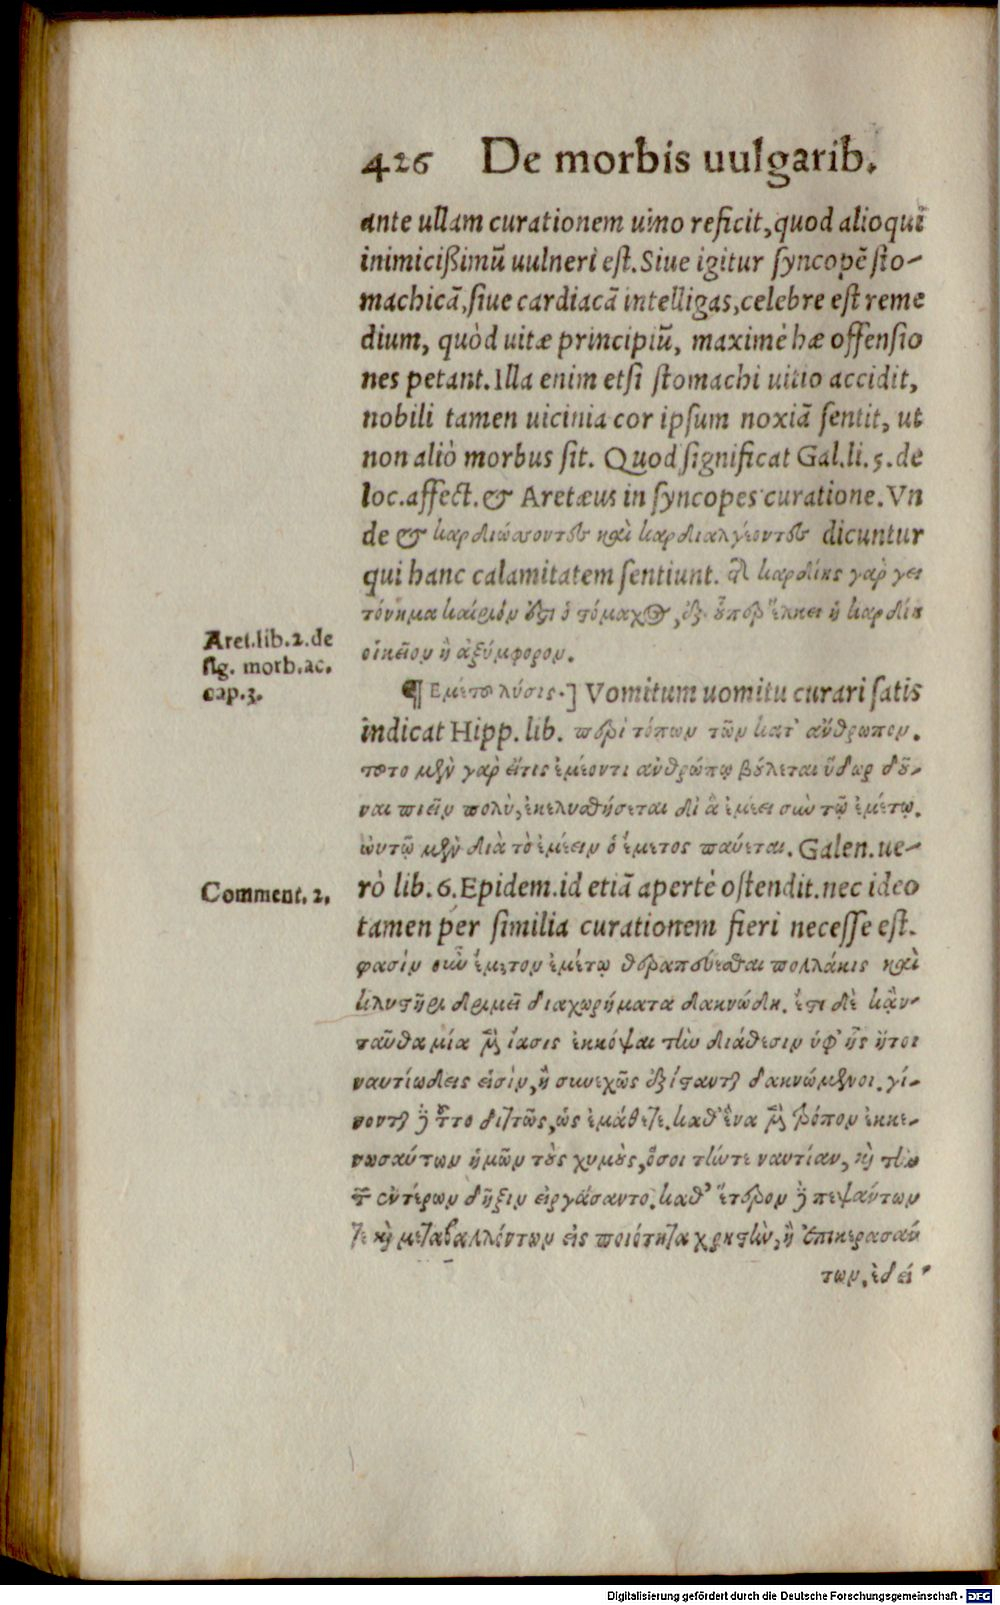 426 De morbis uulgarib.
ante ullam curationem uino reficit, quod alioqui
inimicißimũ uulneri est. Siue igitur syncopẽ sto-
machicã, siue cardiacã intelligas, celebre est reme
dium, quòd uitæ principiũ, maximè hæ offensio
nes petant. Illa enim etsi stomachi uitio accidit,
nobili tamen uicinia cor ipsum noxiã sentit, ut
non aliò morbus sit. Quod significat Gal. li. 5. de
loc. affect. & Aretæus in syncopes curatione. Vn
de & καρδιώσσοντες καὶ καρδιαλγέοντες dicuntur
qui hanc calamitatem sentiunt. τῆς καρδίης γὰρ γει
τόνημα καίριόν ἐστι ὁ στόμαχος, ἐξ ὅπερ ἕλκει ἡ καρδίη
οἰκεῖον ἢ ἀξύμφορον.
Aret. lib. 2. de
sig. morb. ac.
cap. 3.
¶ Ἐμέτου λύσις.] Vomitum uomitu curari satis
indicat Hipp. lib. περὶ τόπων τῶν κατ' ἄνθρωπον.
τοῦτο μὲν γὰρ εἴ τις ἐμέοντι ἀνθρώπῳ βούλεται ὕδωρ δοῦ-
ναι πιεῖν πολὺ, ἐκκλυσθήσεται δι' ἃ ἐμέει σὺν τῷ ἐμέτῳ.
ὡυτῷ μὲν διὰ τὸ ἐμέειν ὁ ἔμετος παύεται. Galen. ue-
rò lib. 6. Epidem. id etiã apertè ostendit. nec ideo
Comment. 2.
tamen per similia curationem fieri necesse est.
φασὶν οὖν ἔμετον ἐμέτῳ θεραπεύεσθαι πολλάκις καὶ
κλυστῆρι δριμεῖ διαχωρήματα δακνώδη. ἔστι δὲ κᾀν-
ταῦθα μία μὲν ἴασις ἐκκόψαι τὴν διάθεσιν ὑφ' ἧς ἤτοι
ναυτιώδεις εἰσὶν, ἢ συνεχῶς ἐξίστανται δακνώμενοι. γί-
νονται δὲ τοῦτο διττῶς, ὡς ἐμάθετε. καθ' ἕνα μὲν τρόπον ἐκκε-
νωσάντων ἡμῶν τοὺς χυμοὺς, ὅσοι τήν τε ναυτίαν, καὶ τὴν
τῶν ἐντέρων δῆξιν εἰργάσαντο. καθ' ἕτερον δὲ πεψάντων
τε καὶ μεταβαλλόντων εἰς ποιότητα χρηστὴν, ἢ ἐπικερασάν
των. ἐδεί
Digitalisierung gefördert durch die Deutsche Forschungsgemeinschaft - DFG